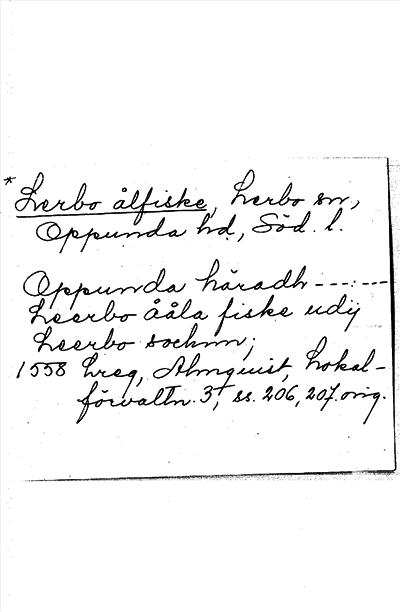 * Lerbo ålfiske, Lerbo sn,
Oppunda hd, Söd. l.
Oppunda häradh ---:---
Leerbo ååla fiske udij
Leerbo sochnn;
1558 Lreg, Almquist, Lokal-
förvaltn. 3, ss. 206, 207. orig.